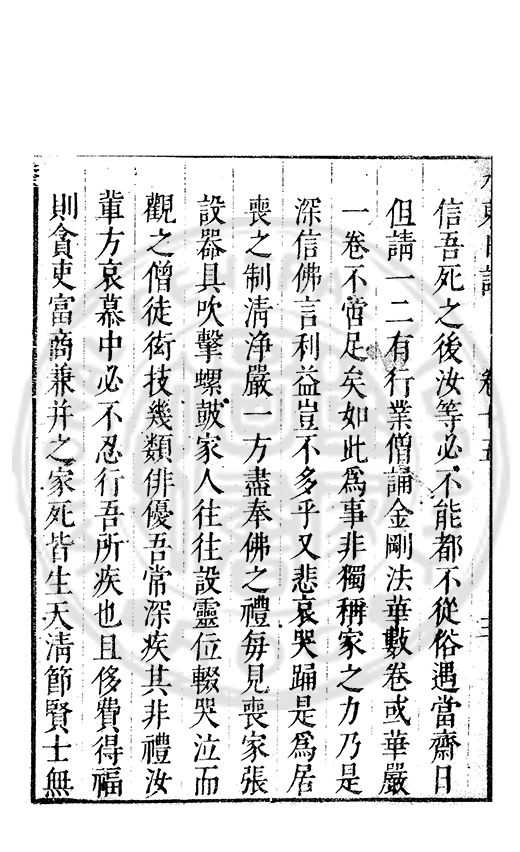 水東日記 卷十五 三
信吾死之後汝等必不能都不從俗遇當齋日
但請一二有行業僧誦金剛法華數卷或華嚴
一卷不啻足矣如此爲事非獨稱家之力乃是
深信佛言利益豈不多乎又悲哀哭踊是爲居
喪之制清净嚴一方盡奉佛之禮每見喪家張
設器具吹擊螺皷家人往往設靈位輟哭泣而
觀之僧徒衒技幾類俳優吾常深疾其非禮汝
輩方哀慕中必不忍行吾所疾也且侈費得福
則貪吏富商兼并之家死皆生天清節賢士無